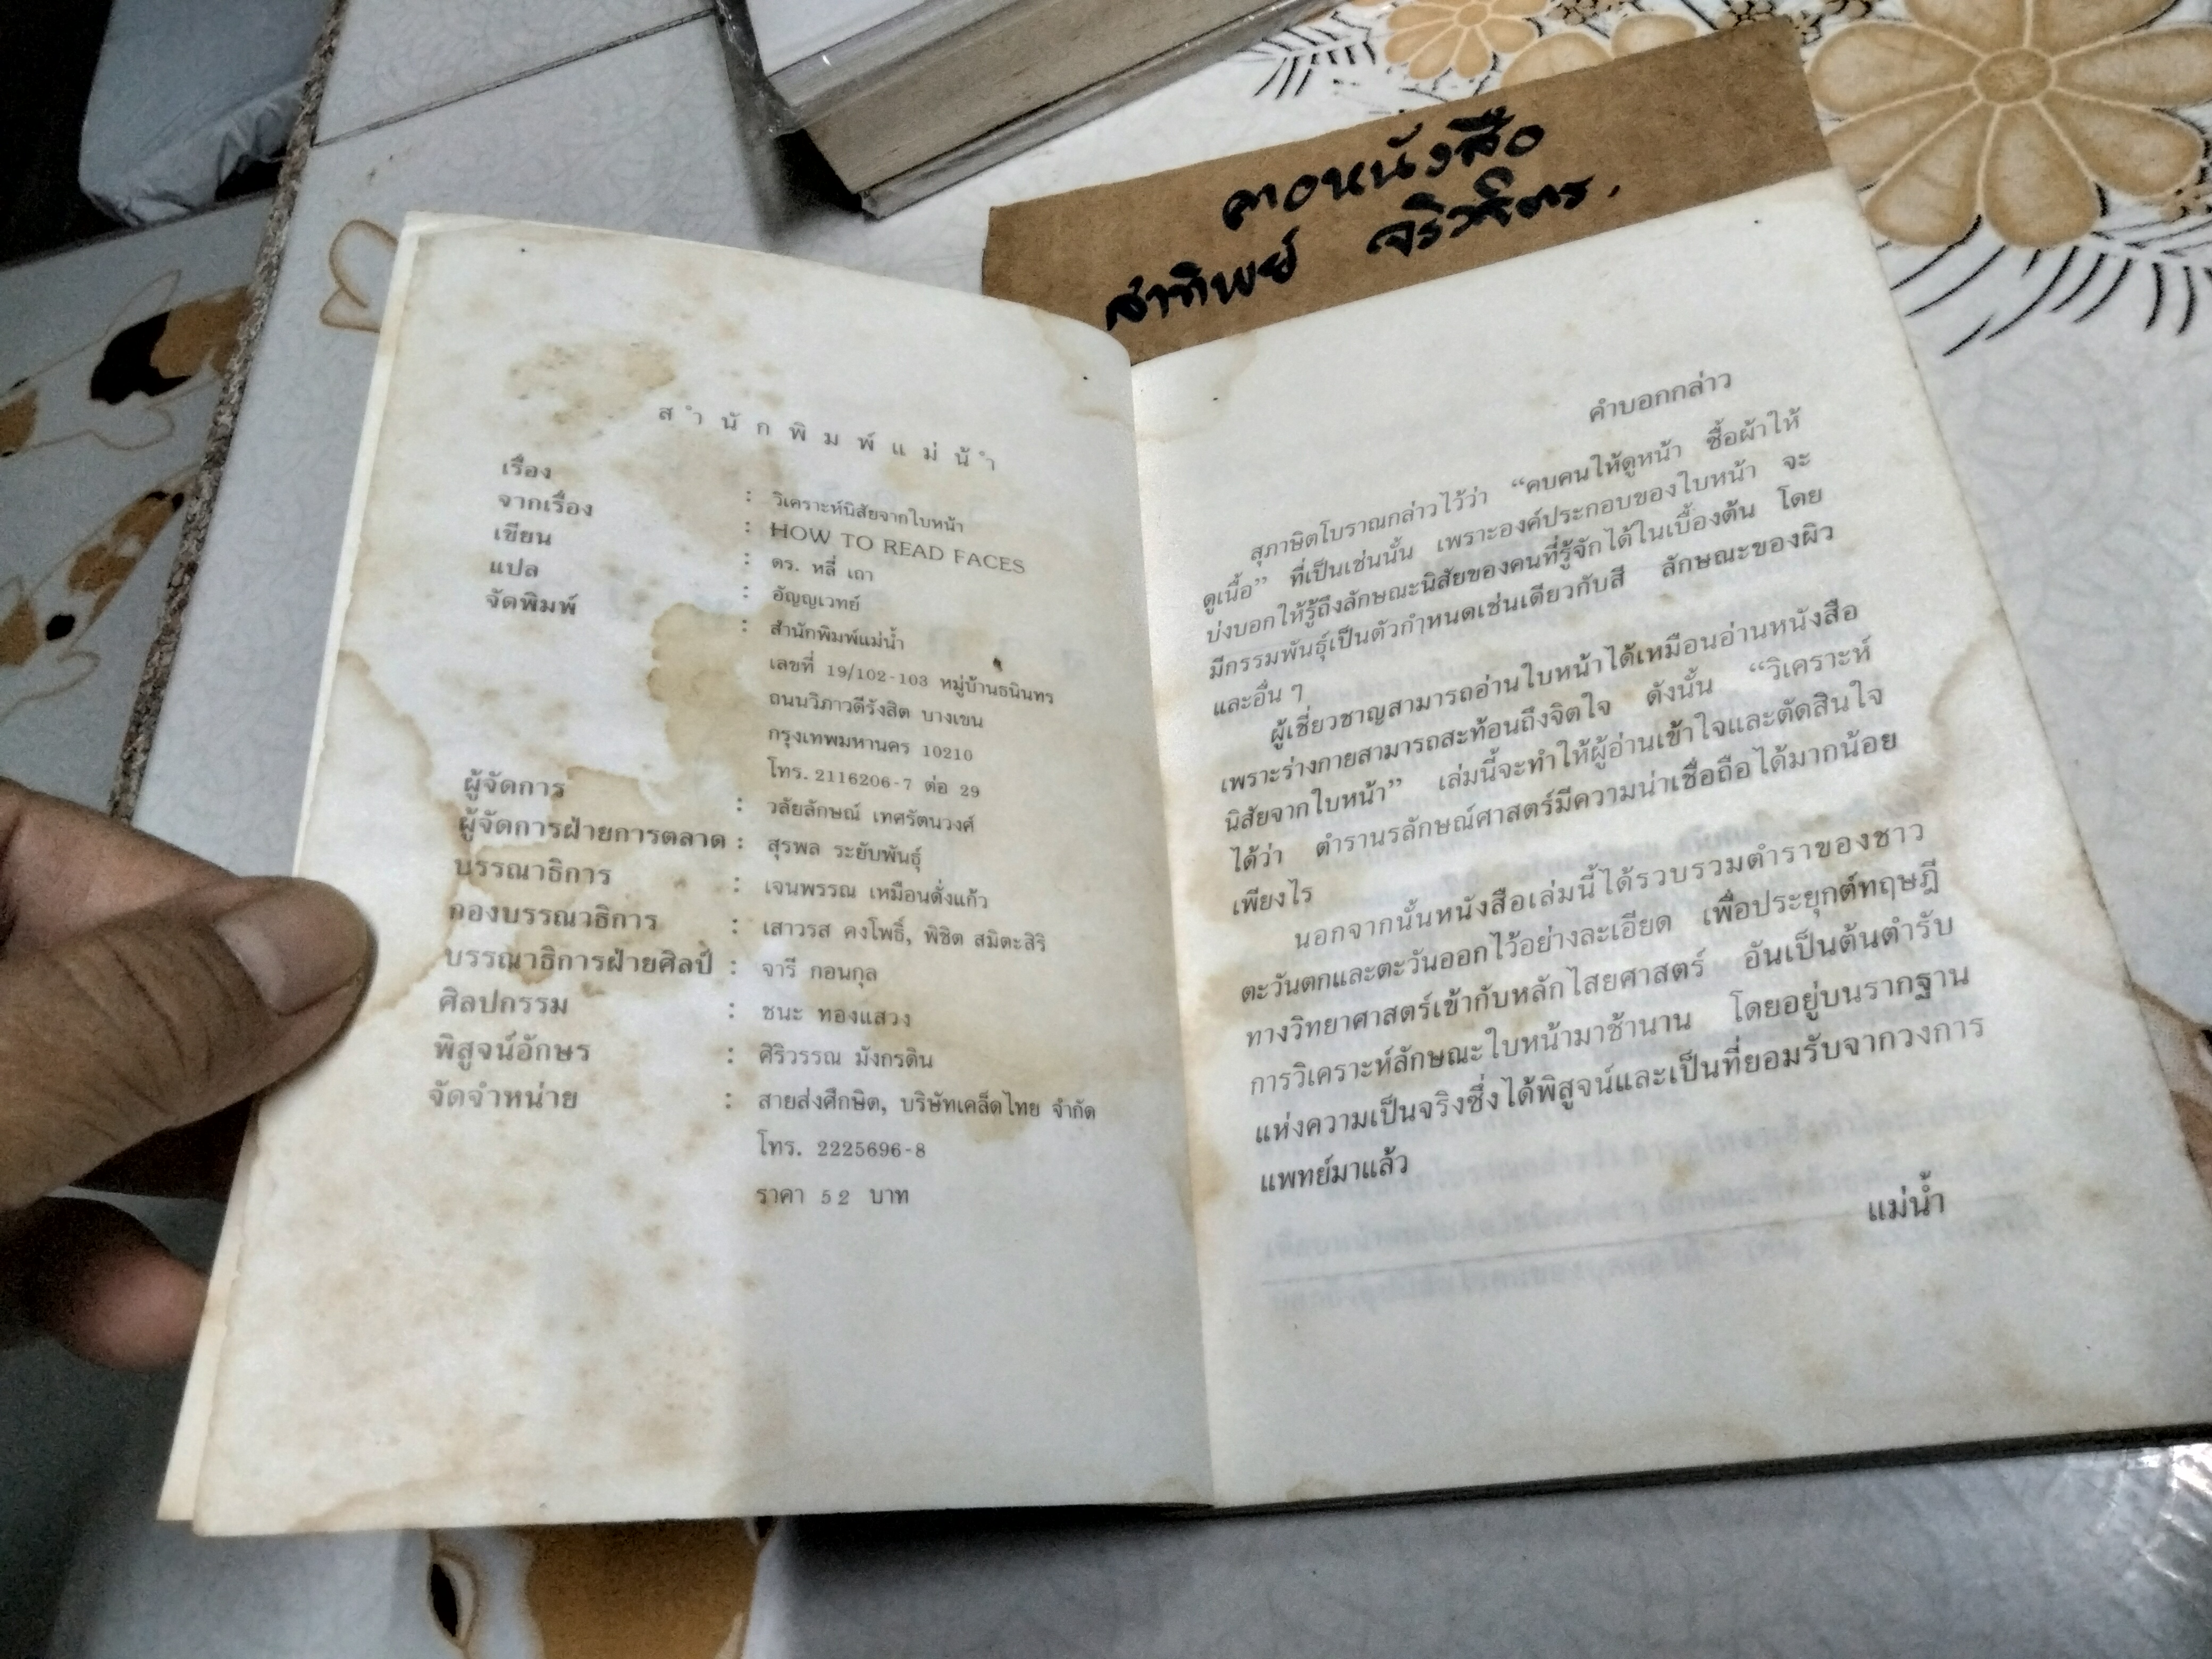 คอหนังสือ
สาทิพย์ จริวจิตร.
สำนักพิมพ์แม่น้ำ
เรื่อง : วิเคราะห์นิสัยจากใบหน้า
จากเรื่อง : HOW TO READ FACES
เขียน : ดร. หลี่ เถา
แปล : อัญญเวทย์
จัดพิมพ์ : สำนักพิมพ์แม่น้ำ
เลขที่ 19/102-103 หมู่บ้านธนินทร
ถนนวิภาวดีรังสิต บางเขน
กรุงเทพมหานคร 10210
โทร. 2116206-7 ต่อ 29
ผู้จัดการ : วลัยลักษณ์ เทศรัตนวงศ์
ผู้จัดการฝ่ายการตลาด : สุรพล ระยับพันธุ์
บรรณาธิการ : เจนพรรณ เหมือนดั่งแก้ว
กองบรรณาธิการ : เสาวรส คงโพธิ์, พิชิต สมิตะสิริ
บรรณาธิการฝ่ายศิลป์ : จารี กอนกุล
ศิลปกรรม : ชนะ ทองแสวง
พิสูจน์อักษร : ศิริวรรณ มังกรดิน
จัดจำหน่าย : สายส่งศึกษิต, บริษัทเคล็ดไทย จำกัด
โทร. 2225696-8
ราคา 52 บาท
คำบอกกล่าว
สุภาษิตโบราณกล่าวไว้ว่า “คบคนให้ดูหน้า ซื้อผ้าให้
ดูเนื้อ” ที่เป็นเช่นนั้น เพราะองค์ประกอบของใบหน้า จะ
บ่งบอกให้รู้ถึงลักษณะนิสัยของคนที่รู้จักได้ในเบื้องต้น โดย
มีกรรมพันธุ์เป็นตัวกำหนดเช่นเดียวกับสี ลักษณะของผิว
และอื่น ๆ
ผู้เชี่ยวชาญสามารถอ่านใบหน้าได้เหมือนอ่านหนังสือ
เพราะร่างกายสามารถสะท้อนถึงจิตใจ ดังนั้น “วิเคราะห์
นิสัยจากใบหน้า” เล่มนี้จะทำให้ผู้อ่านเข้าใจและตัดสินใจ
ได้ว่า ตำรานรลักษณ์ศาสตร์มีความน่าเชื่อถือได้มากน้อย
เพียงไร
นอกจากนั้นหนังสือเล่มนี้ได้รวบรวมตำราของชาว
ตะวันตกและตะวันออกไว้อย่างละเอียด เพื่อประยุกต์ทฤษฎี
ทางวิทยาศาสตร์เข้ากับหลักไสยศาสตร์ อันเป็นต้นตำรับ
การวิเคราะห์ลักษณะใบหน้ามาช้านาน โดยอยู่บนรากฐาน
แห่งความเป็นจริงซึ่งได้พิสูจน์และเป็นที่ยอมรับจากวงการ
แพทย์มาแล้ว
แม่น้ำ